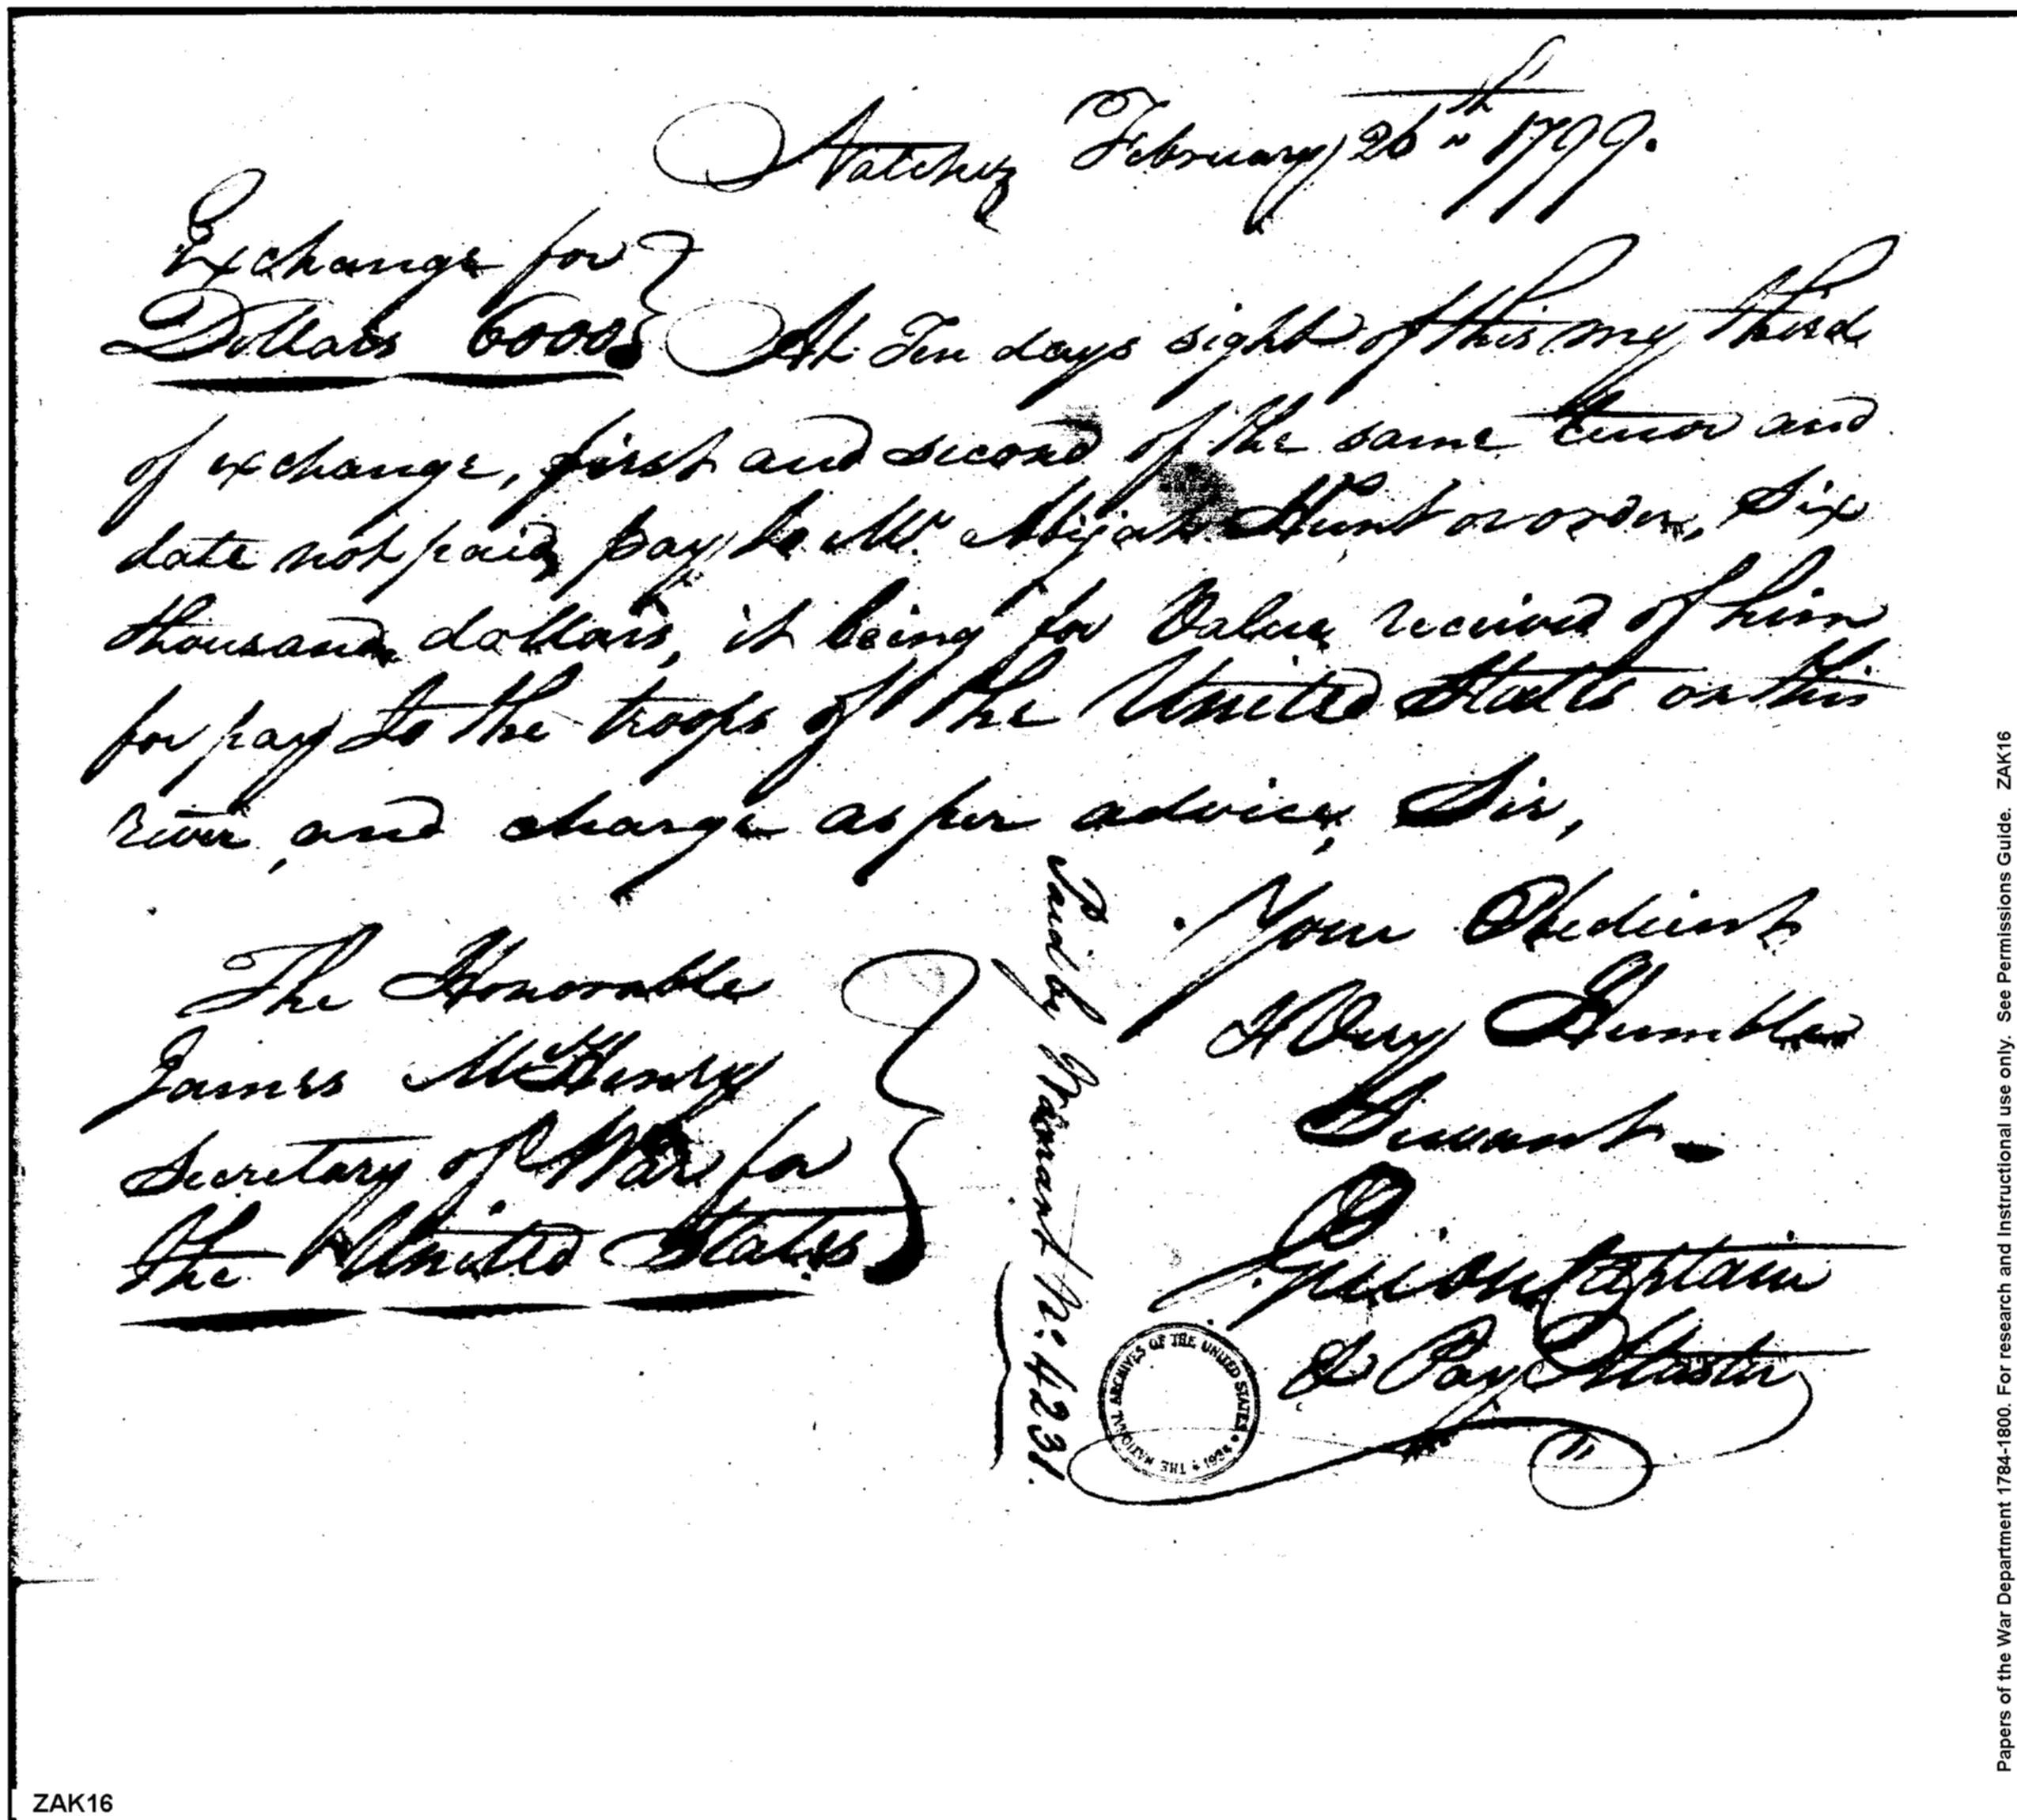 Natchez February 26th 1799.
Exchange for
Dollars 6000 } At Ten days sight of this my third
of exchange, first and second of the same tenor and
date not paid, pay to Mr Abijah Hunt or order, Six
thousand dollars, it being for Value received of him
for pay to the troops of the United States on this
river, and charge as per advice, Sir,
Your Obedient
& Very Humble
Servant -
Guion Captain
& Pay Master
The Honorable
James McHenry
Secretary of War for
the United States
Paid by Warrant No. 4231.
THE NATIONAL ARCHIVES OF THE UNITED STATES * 1934 *
Papers of the War Department 1784-1800. For research and Instructional use only. See Permissions Guide. ZAK16
ZAK16